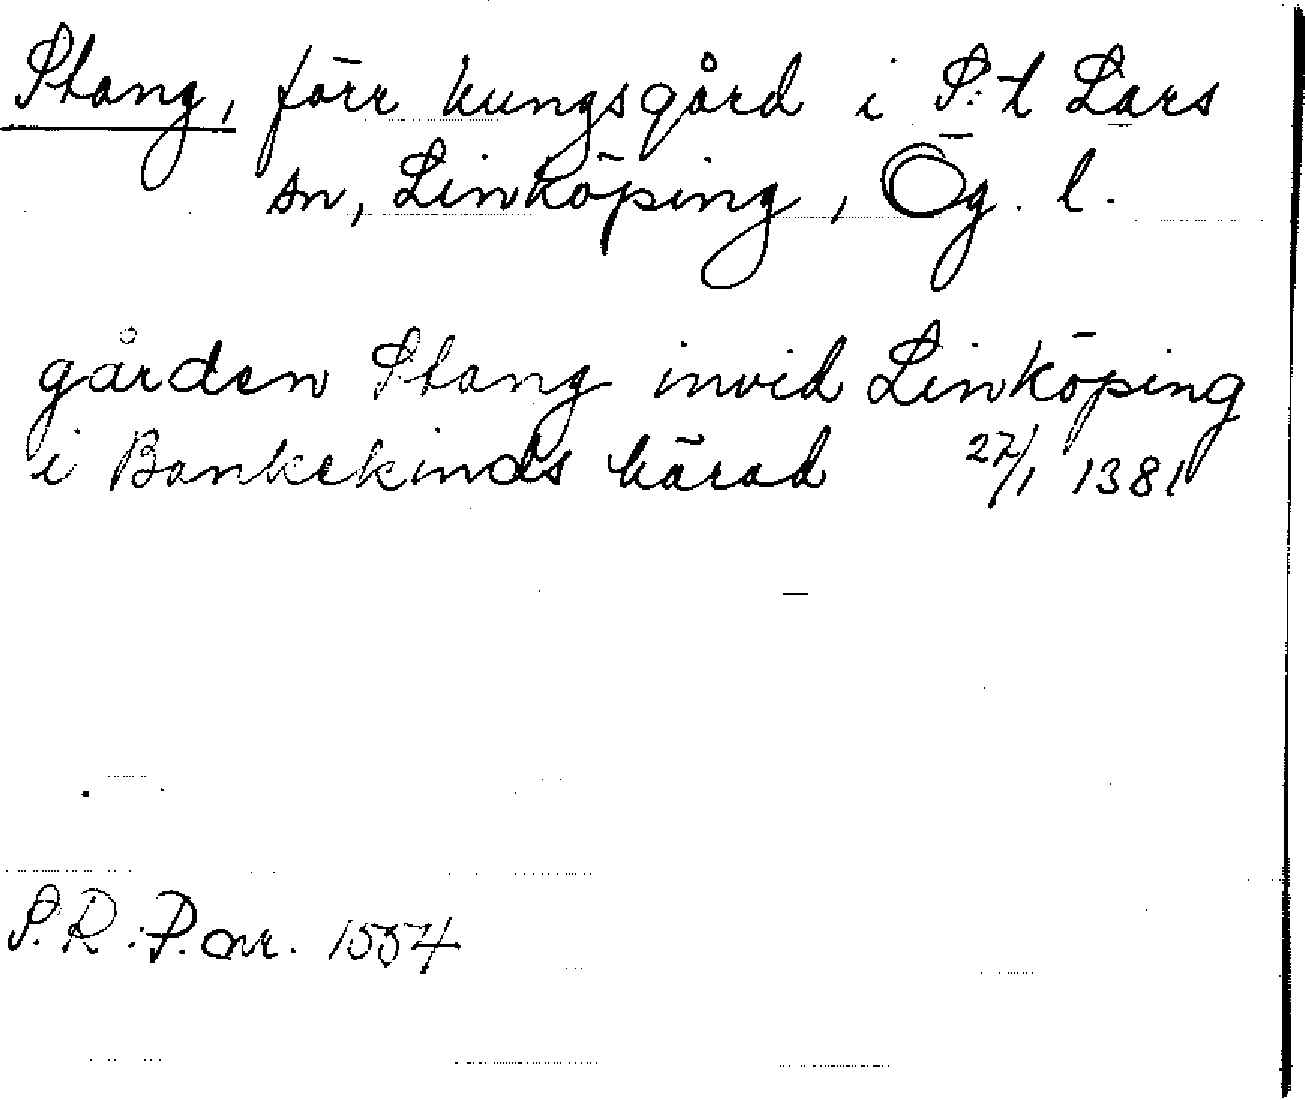 Stang, förr kungsgård i S:t Lars
sn, Linköping, Ög. l.
gården Stang invid Linköping
i Bankekinds härad 27/1 1381
S.R.P. nr. 1554